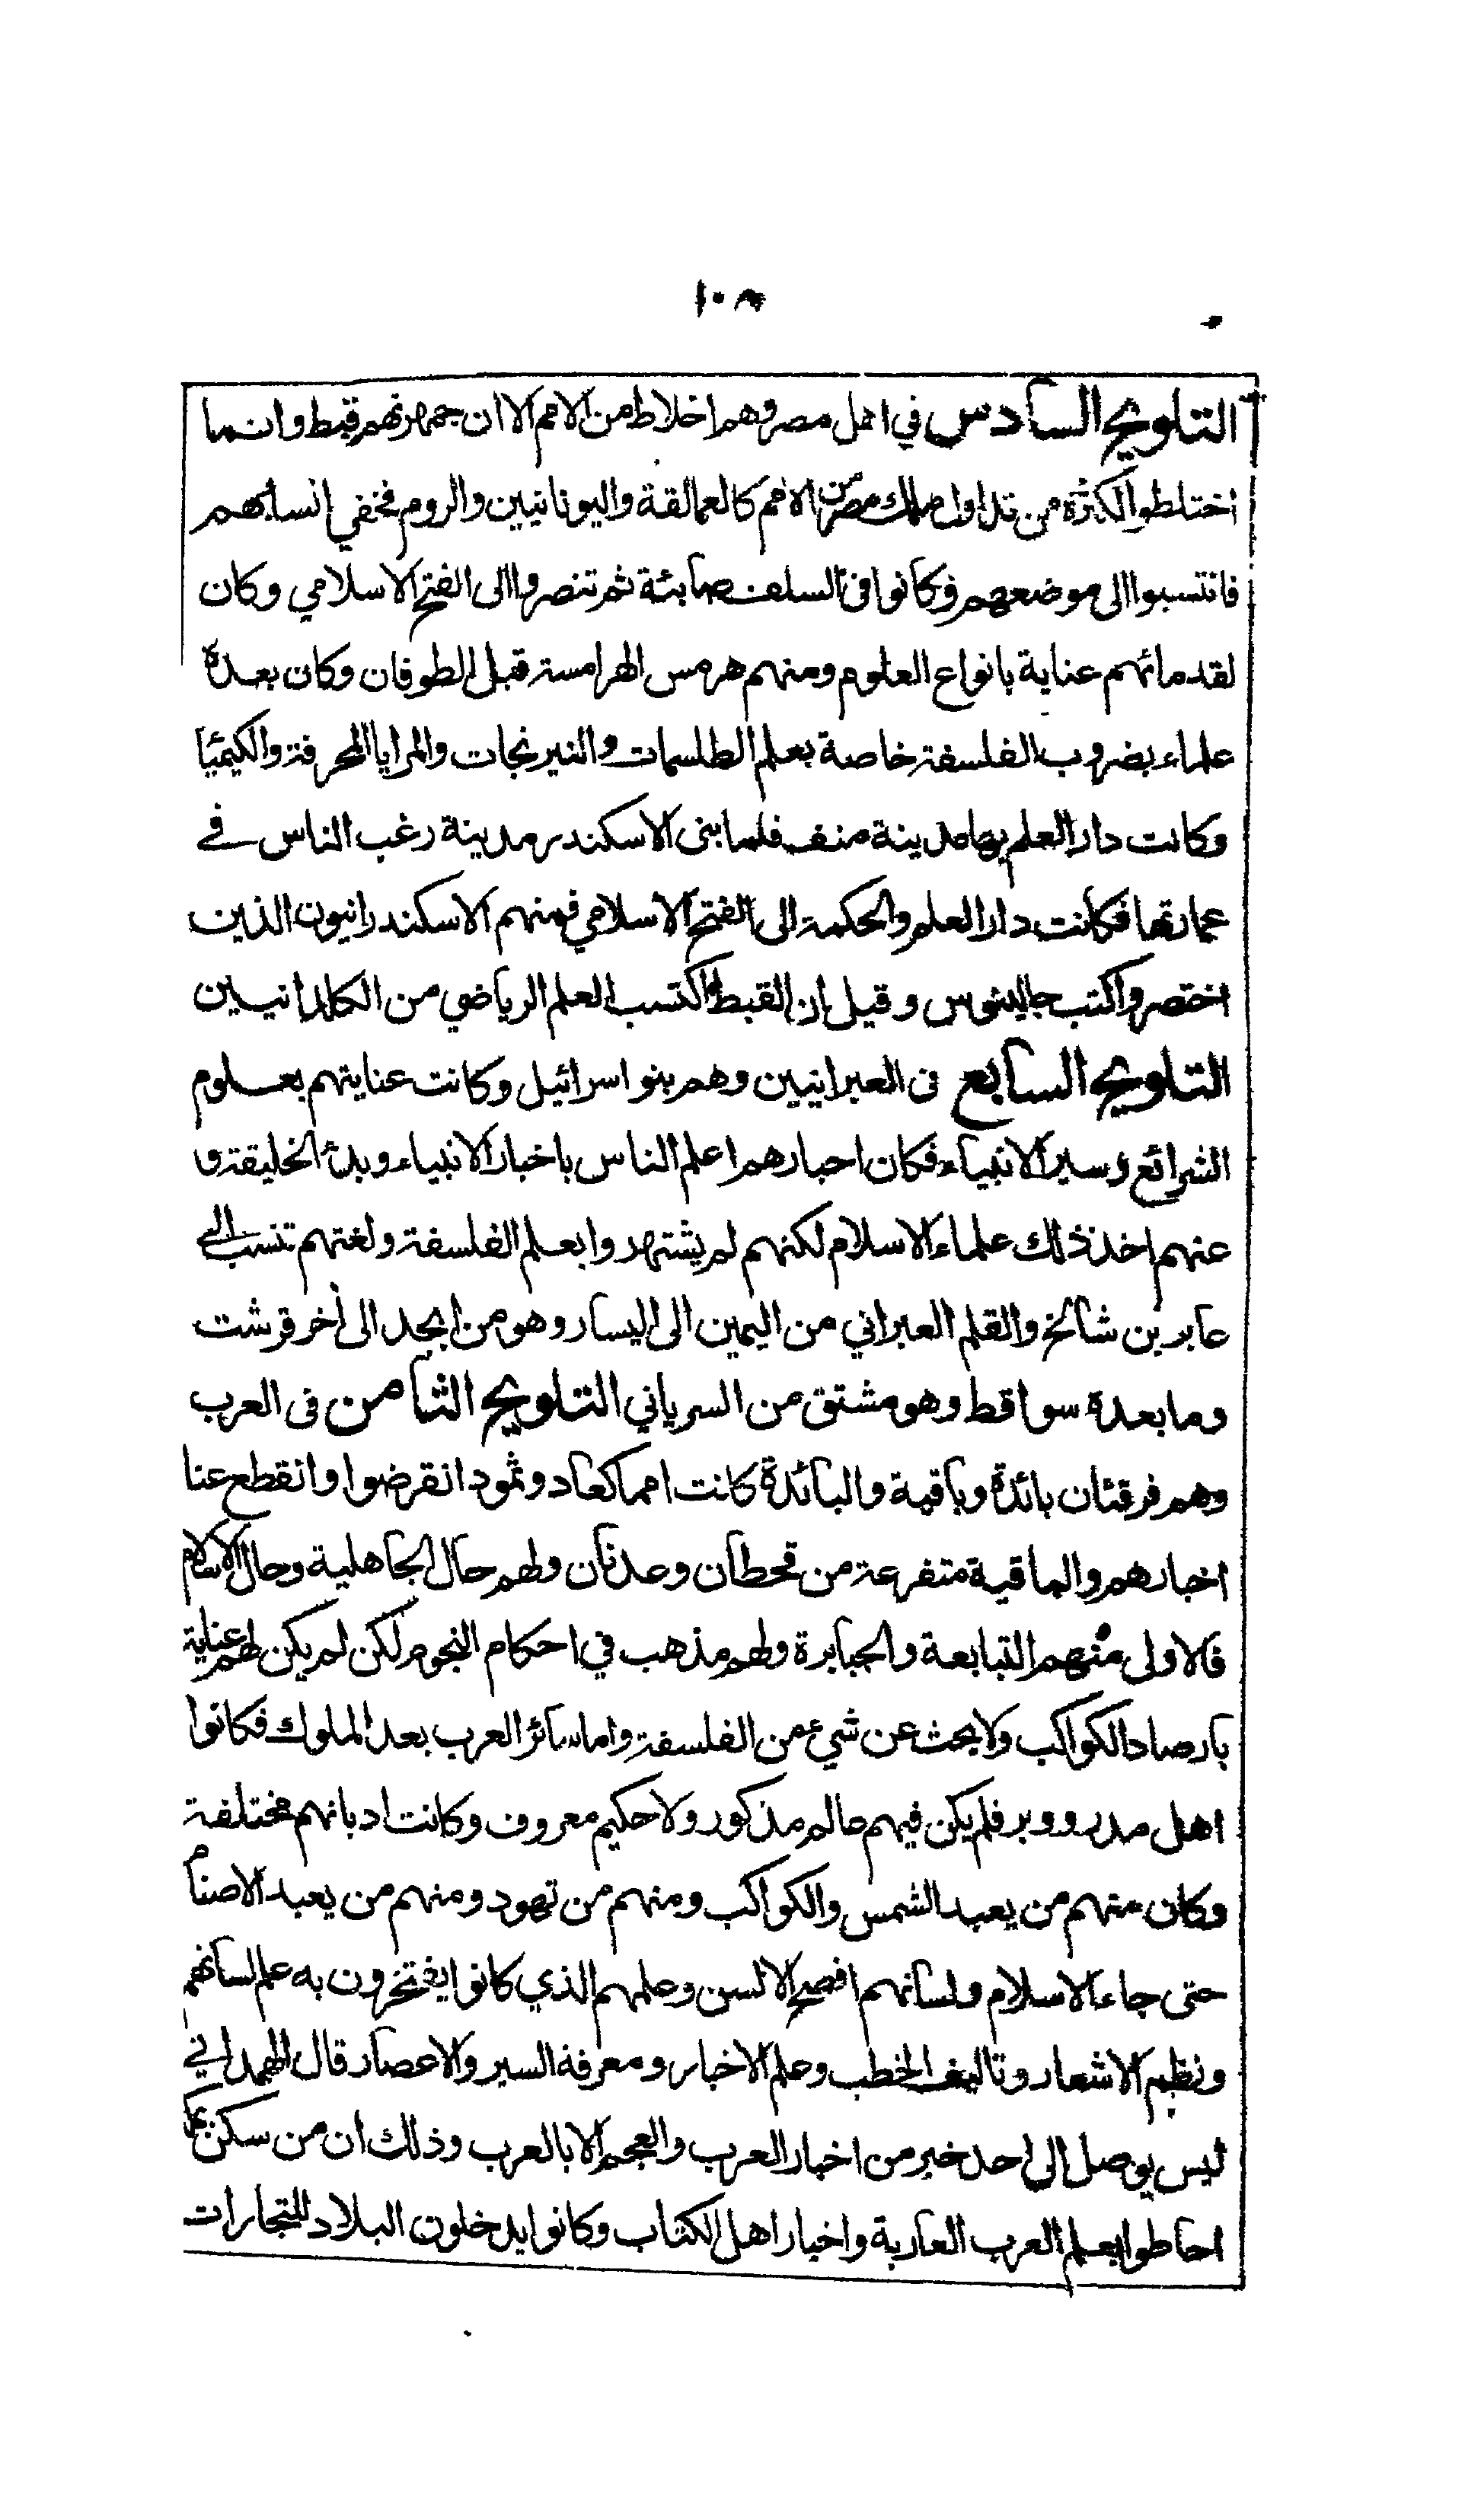 ١٠٨
التلويح السادس في اهل مصر وهم اخلاط من الامم الا ان جمهرتهم قبط وانما
اختلطوا لكثرة من تداول ملك مصر من الامم كالعمالقة واليونانيين والروم فخفي انسابهم
فانتسبوا الى موضعهم وكانوا فى السلف صابئة ثم تنصروا الى الفتح الاسلامي وكان
لقدمائهم عناية بانواع العلوم ومنهم هرمس الهرامسة قبل الطوفان وكان بعده
علماء بضروب الفلسفة خاصة بعلم الطلسمات والنيرنجات والمرايا المحرقة والكيميا
وكانت دار العلم بها مدينة منف فلما بنى الاسكندر مدينة رغب الناس في
عمارتها فكانت دار العلم والحكمة الى الفتح الاسلامي فمنهم الاسكندرانيون الذين
اختصروا كتب جالينوس وقيل ان القبط اكتسب العلم الرياضي من الكلدانيين
التلويح السابع فى العبرانيين وهم بنو اسرائيل وكانت عنايتهم بعلوم
الشرائع وسير الانبياء فكان احبارهم اعلم الناس باخبار الانبياء وبدئ الخليقة و
عنهم اخذ ذلك علماء الاسلام لكنهم لم يشتهروا بعلم الفلسفة ولغتهم تنسب الى
عابر بن شالخ والقلم العبراني من اليمين الى اليسار وهو من ابجد الى أخر قرشت
وما بعده سواقط وهو مشتق من السرياني التلويح الثامن فى العرب
وهم فرقتان بائدة وباقية والبائدة كانت امما كعاد وثمود انقرضوا وانقطع عنا
اخبارهم والباقية متفرعة من قحطان وعدنان ولهم حال الجاهلية وحال الاسلام
فالاولى منهم التبابعة والجبابرة ولهم مذهب في احكام النجوم لكن لم يكن لهم عناية
بارصاد الكواكب ولا بحث عن شيء من الفلسفة واما سائر العرب بعد الملوك فكانوا
اهل مدر ووبر فلم يكن فيهم عالم مذكور ولا حكيم معروف وكانت اديانهم مختلفة
وكان منهم من يعبد الشمس والكواكب ومنهم من تهود ومنهم من يعبد الاصنام
حتى جاء الاسلام ولسانهم افصح الالسن وعلمهم الذي كانوا يفتخرون به علم لسانهم
ونظم الاشعار وتاليف الخطب وعلم الاخبار ومعرفة السير والاعصار قال الهمداني
ليس يوصل الى احد خبر من اخبار العرب والعجم الا بالعرب وذلك ان من سكن بمكة
احاطوا بعلم العرب العاربة واخبار اهل الكتاب وكانوا يدخلون البلاد للتجارات